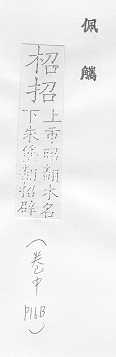 佩觿
柖招
上市昭翻木名
下朱條翻招辟
(卷中 P16B)